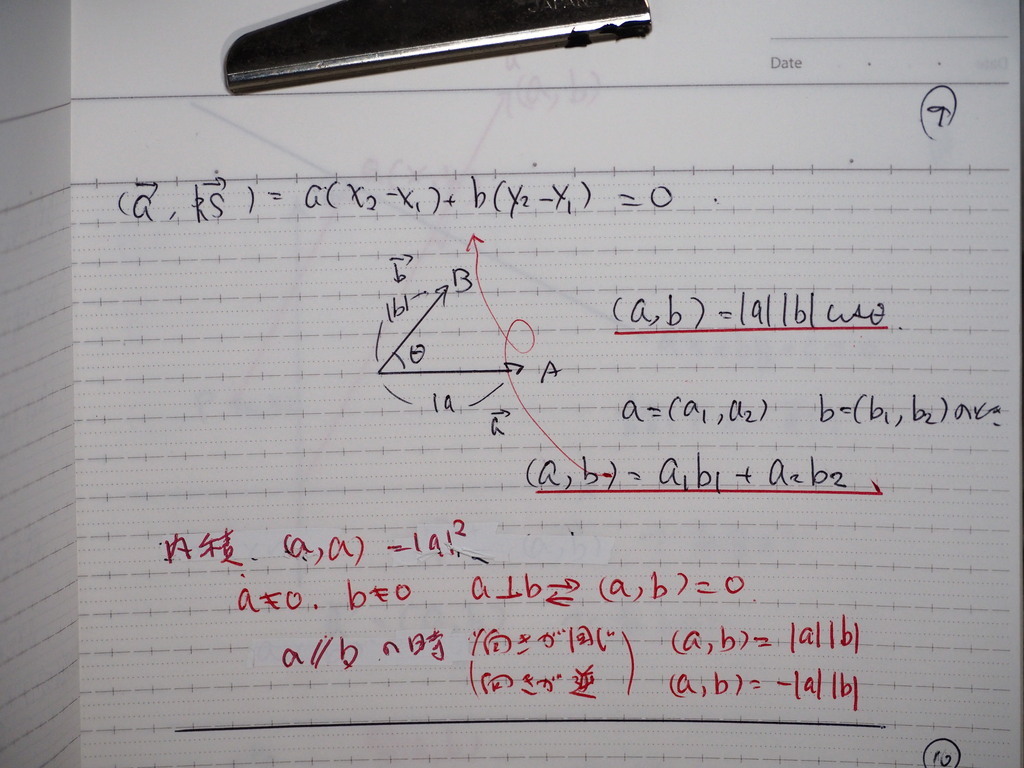 JAPAN
Date
9
(a⃗, ps⃗) = a(x₂-x₁) + b(y₂-y₁) = 0.
b⃗
|b| B
(a,b) = |a||b| cosθ.
θ
A
|a
a⃗
a=(a₁,a₂) b=(b₁,b₂)のとき
(a,b) = a₁b₁ + a₂b₂
内積. (a,a) = |a|²
a≠0. b≠0 a⊥b⇄(a,b)=0
a//bの時 (向きが同じ) (a,b)=|a||b|
(向きが逆) (a,b)=-|a||b|
10